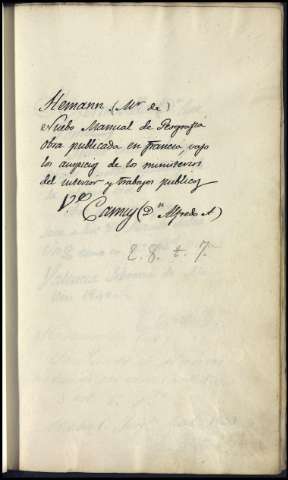 Hemann (Mr de)
Nuebo Manual de Geografia
obra publicada en francia, vajo
los auspicios de los ministerios
del interior y trabajos publicos
Ve Camus (Dn Alfredo A)
E. 8. t. 7.